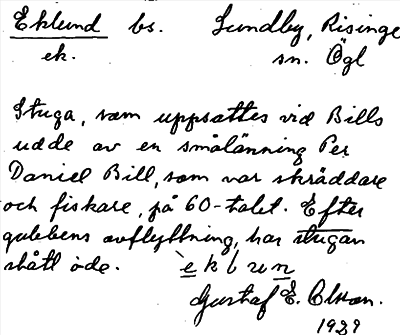 Eklund bs. Lundby, Risinge
ek. sn. Ögl
Stuga, som uppsattes vid Bills
udde av en smålänning Per
Daniel Bill, som var skräddare
och fiskare, på 60-talet. Efter
gubbens avflyttning, har stugan
stått öde. `e k l u n
Gustaf E. Olson.
1929